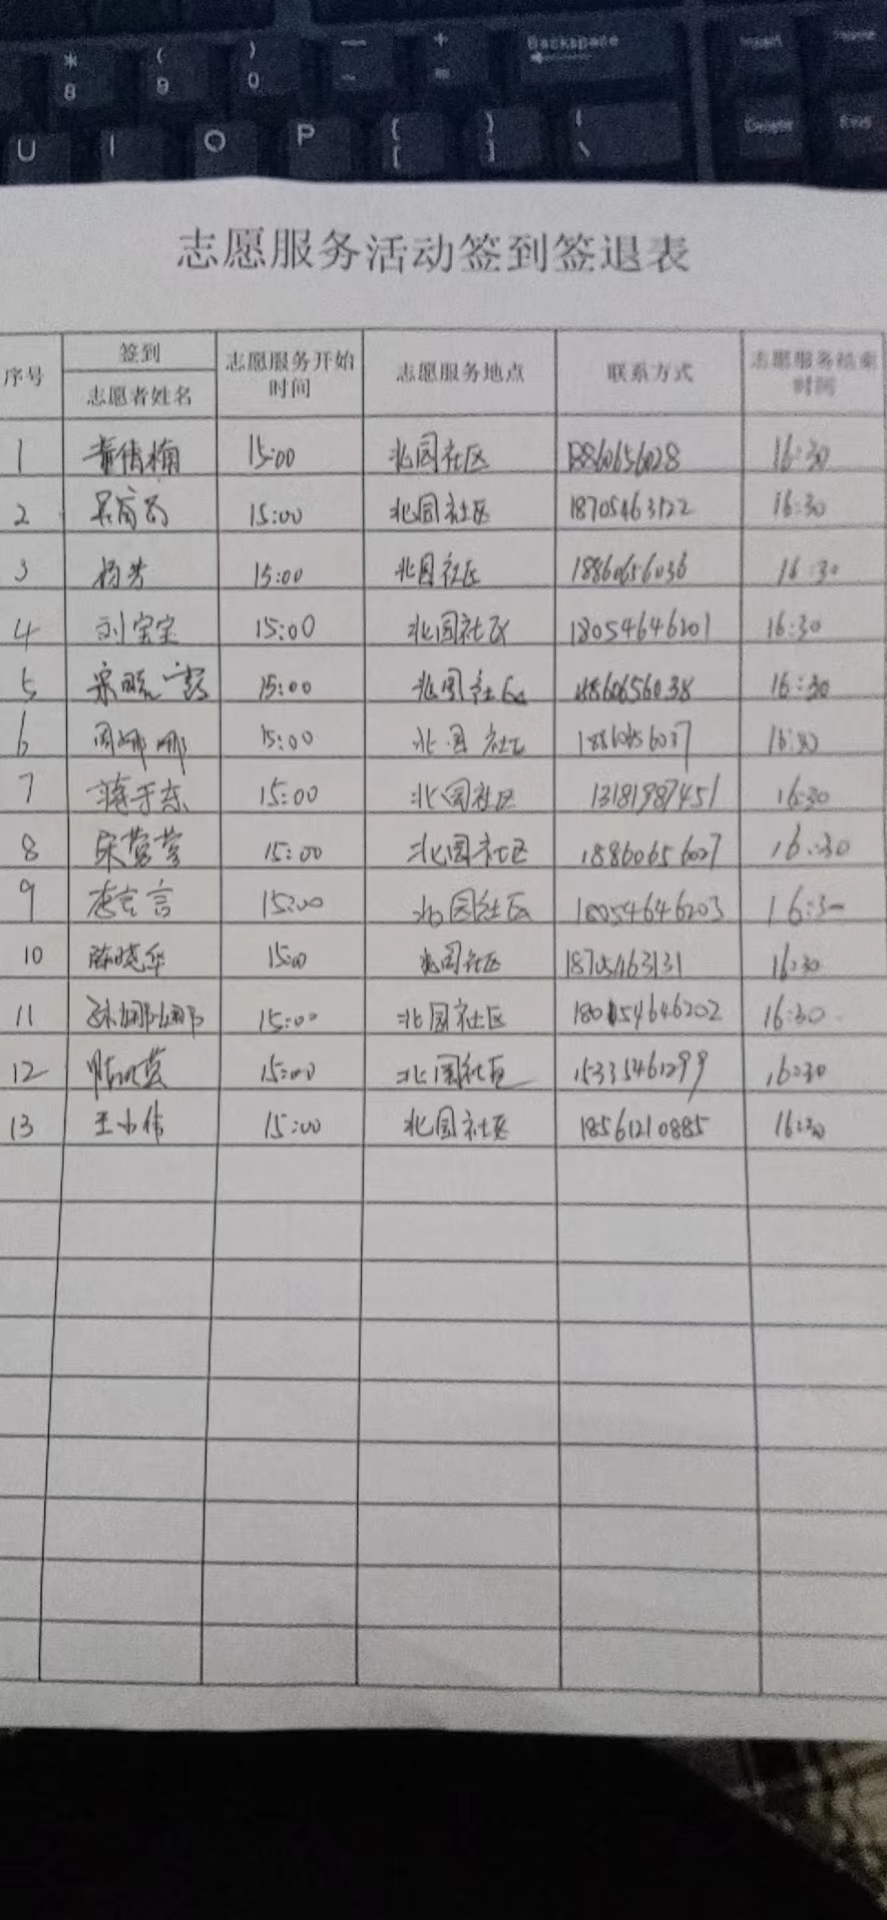 * ( ) — + Backspace Insert Home
8 9 0 ~ = Delete End
U I O P { [ } ] | \
志愿服务活动签到签退表
序号 签到 志愿者姓名 志愿服务开始时间 志愿服务地点 联系方式 志愿服务结束时间
1 董倩楠 15:00 北园社区 18860656028 16:30
2 15:00 北园社区 18705463122 16:30
3 杨芳 15:00 北园社区 18860656036 16:30
4 刘宝宝 15:00 北园社区 18054646201 16:30
5 宋晓霞 15:00 北园社区 18860656038 16:30
6 周娜娜 15:00 北园社区 16:30
7 蒋于东 15:00 北园社区 13181987451 16:30
8 宋莹莹 15:00 北园社区 18860656027 16:30
9 15:00 北园社区 18054646203 16:30
10 陈晓华 15:00 北园社区 18705463131 16:30
11 孙娜娜 15:00 北园社区 18054646202 16:30
12 15:00 北园社区 15335461299 16:30
13 王小伟 15:00 北园社区 18561210885 16:30